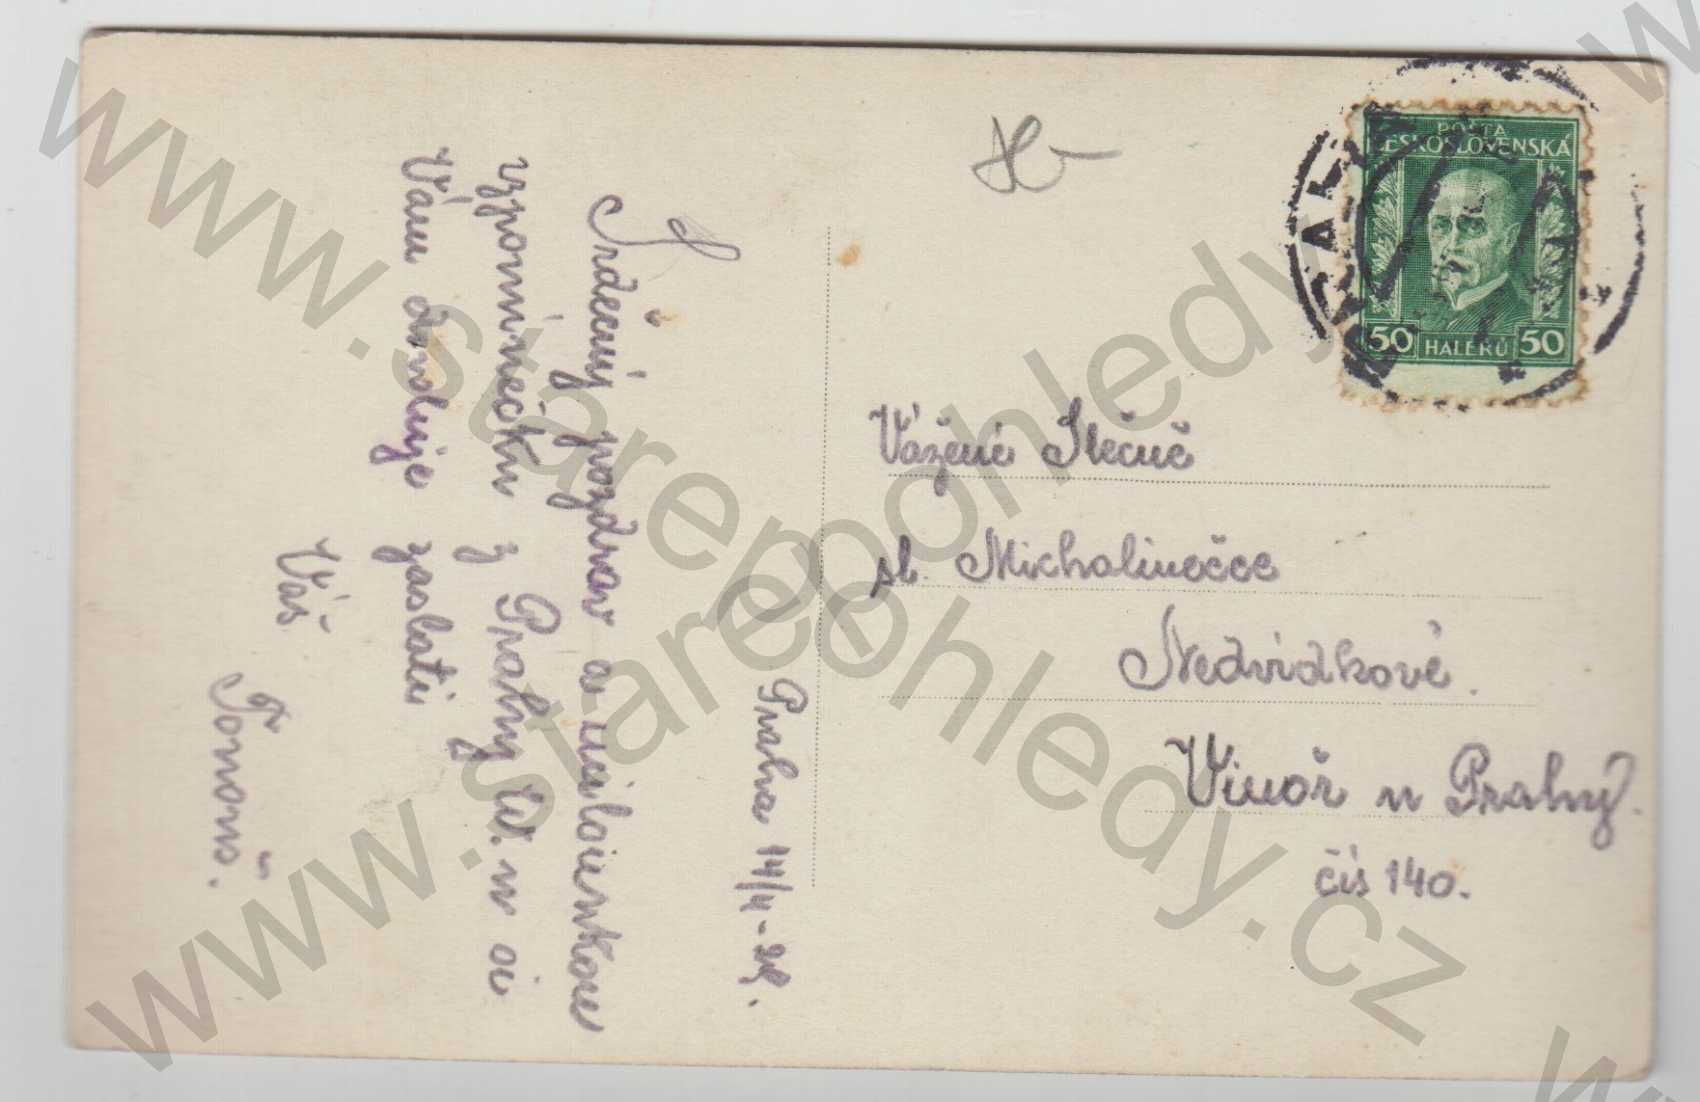 Praha 14/4-28.
Srdečný pozdrav a
vzpomínečku z Prahy
Vám dovoluje zaslati
Váš
POŠTA
ČESKOSLOVENSKÁ
50 HALÉŘŮ 50
Vážené Slečně
sl. Michalinečce
Nedvídkové.
Vinoř u Prahy.
čís 140.
www.starepohledy.cz
www.starepohledy.cz